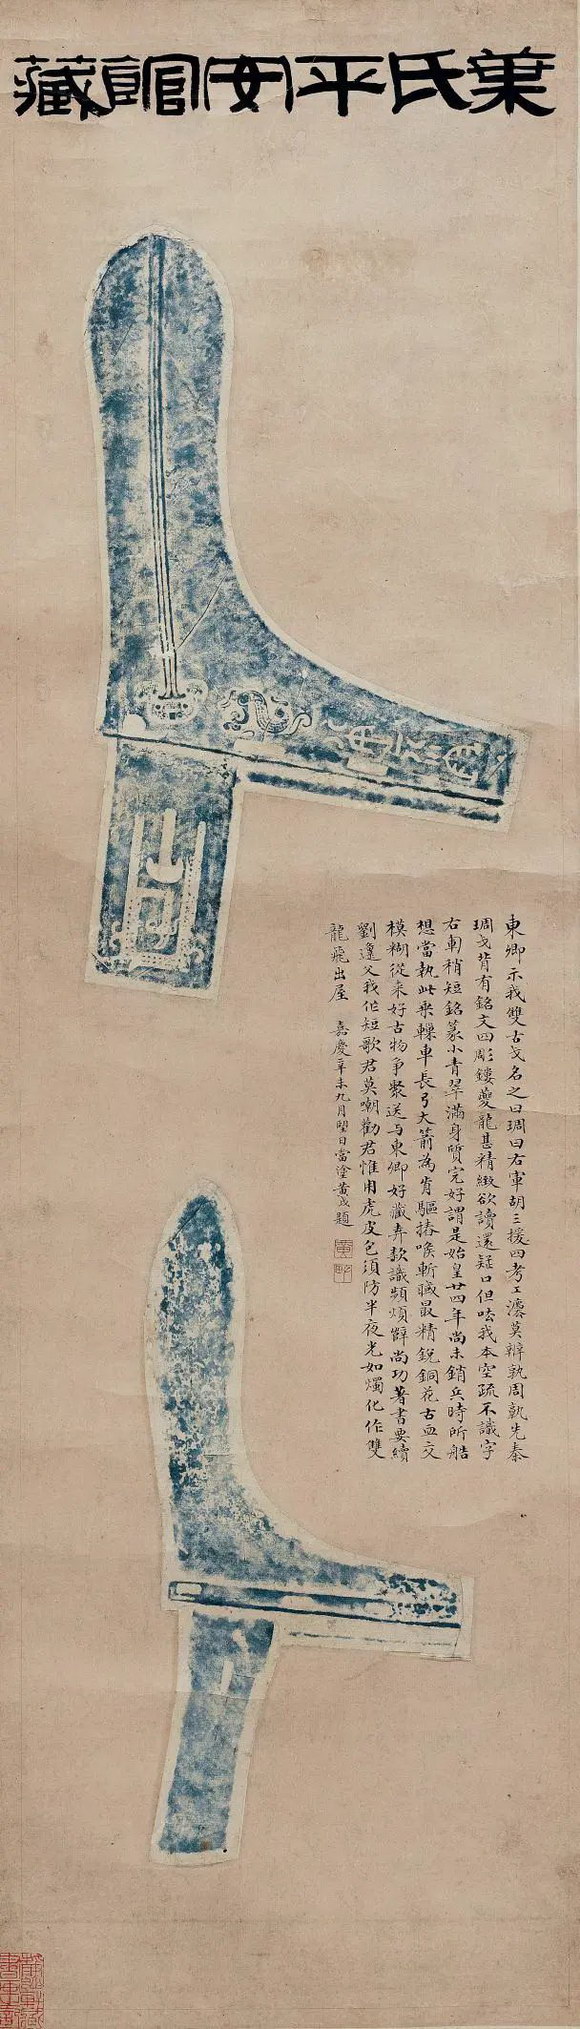 葉氏平安館藏
東卿示我雙古戈名之曰琱曰右軍胡三援四考工灋莫辨孰周孰先秦
琱戈背有銘文四彫鏤夔龍甚精緻欲讀還疑口但呿我本空疏不識字
右軍稍短銘篆小青翠滿身質完好謂是始皇廿四年尚未銷兵時所艁
想當執此乘轈車長弓大箭為肯驅摏喉斬馘最精銳銅花古血交
模糊從来好古物爭聚送与東卿好藏弆款識頻煩辥尚功著書要續
劉邍父我作短歌君莫嘲勸君惟用虎皮包須防半夜光如燭化作雙
龍飛出屋 嘉慶辛未九月望日當塗黃戉題